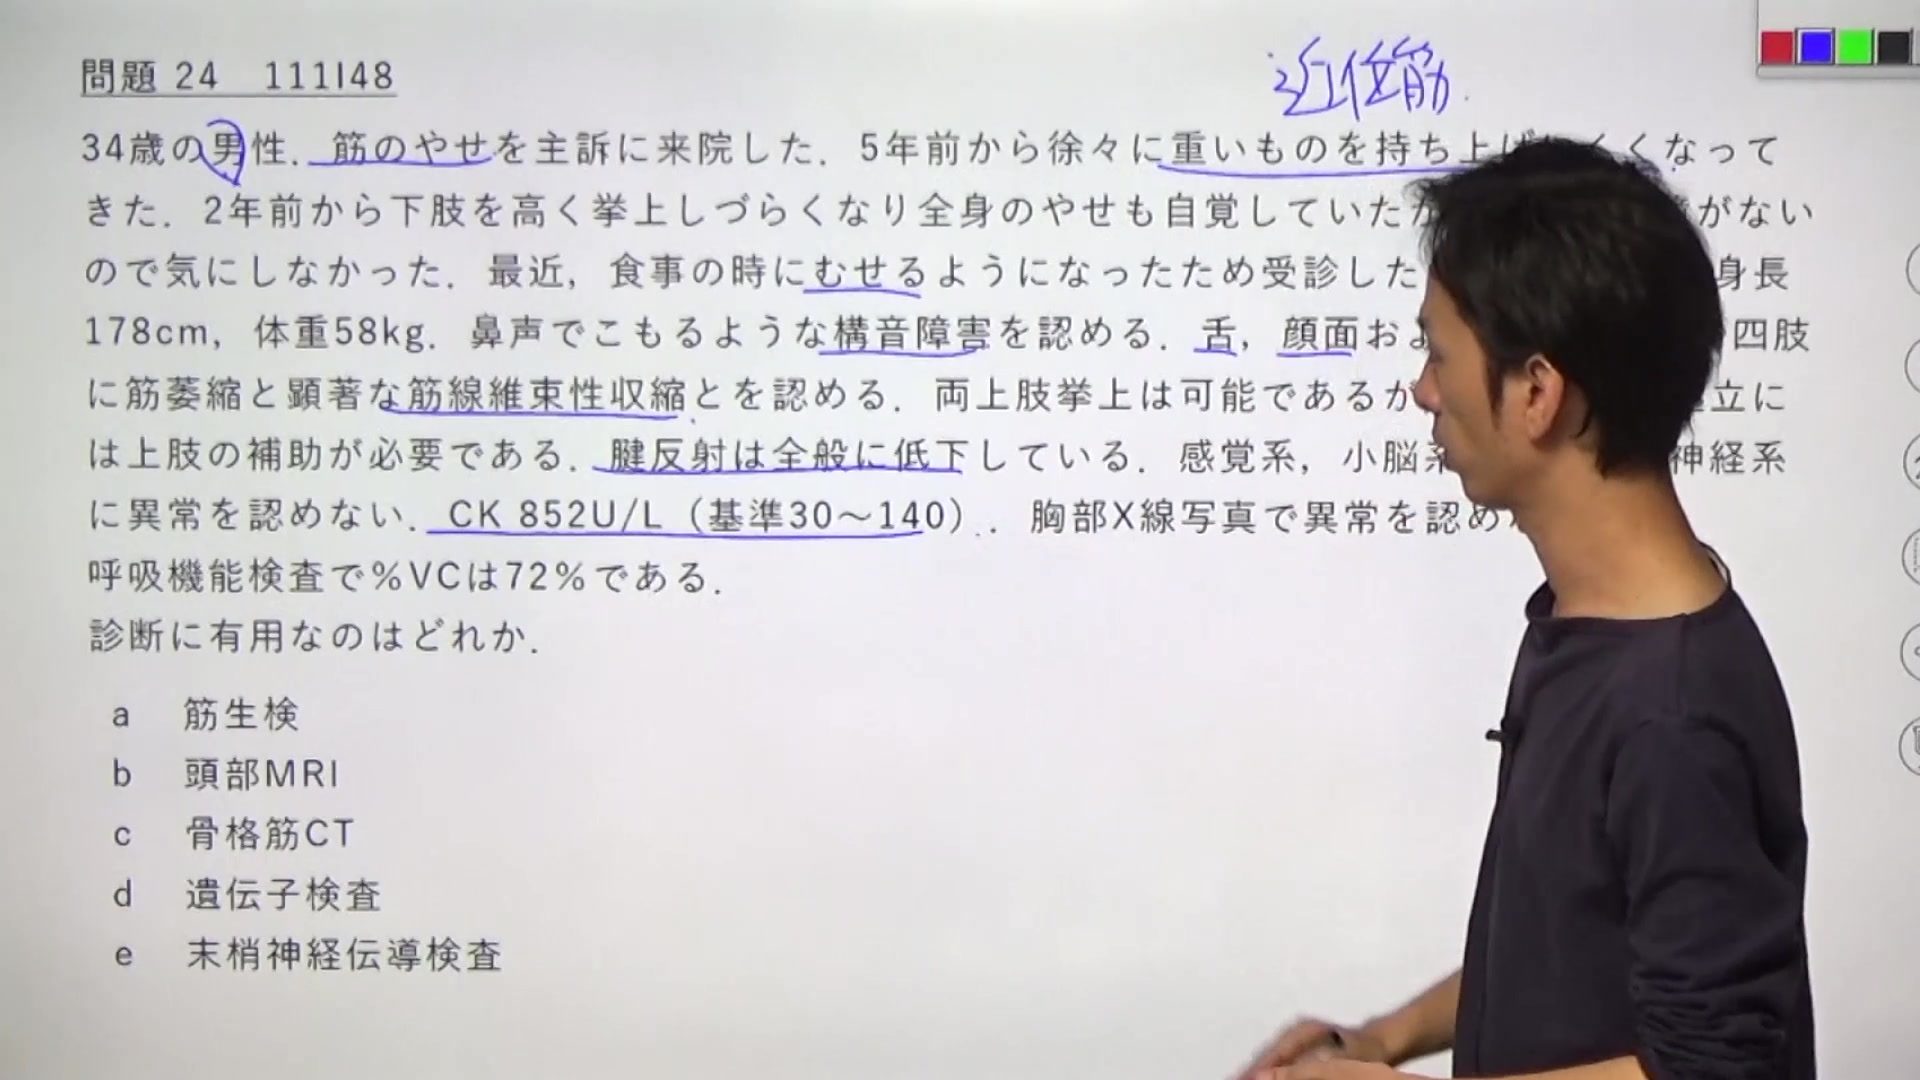 問題 24　111I48
近位筋
34歳の男性．筋のやせを主訴に来院した．5年前から徐々に重いものを持ち上げ くくなって
きた．2年前から下肢を高く挙上しづらくなり全身のやせも自覚していたが がない
ので気にしなかった．最近，食事の時にむせるようになったため受診した 身長
178cm，体重58kg．鼻声でこもるような構音障害を認める．舌，顔面およ 四肢
に筋萎縮と顕著な筋線維束性収縮とを認める．両上肢挙上は可能であるが 立に
は上肢の補助が必要である．腱反射は全般に低下している．感覚系，小脳系 神経系
に異常を認めない．CK 852U/L（基準30〜140）．胸部X線写真で異常を認め
呼吸機能検査で%VCは72%である．
診断に有用なのはどれか．
a 筋生検
b 頭部MRI
c 骨格筋CT
d 遺伝子検査
e 末梢神経伝導検査